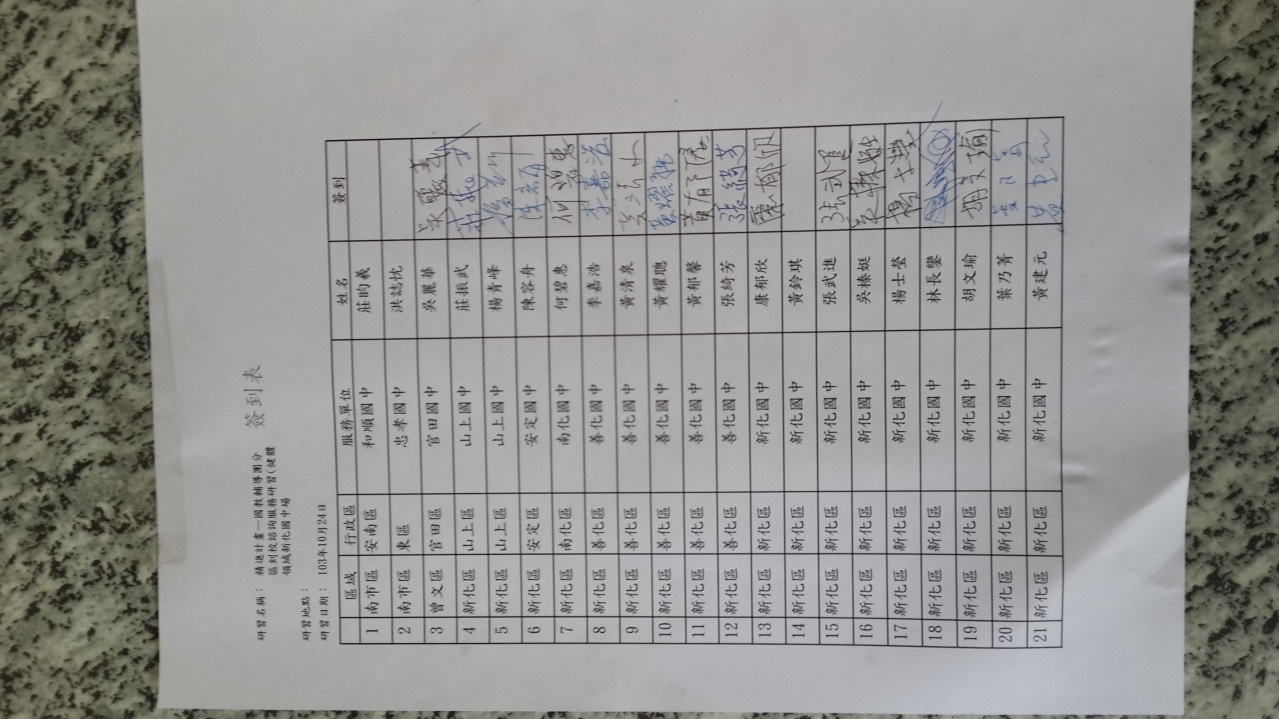 簽到表
研習名稱：精進計畫—國教輔導團分
區到校諮詢服務研習(健體
領域新化國中場
研習地點：
研習日期：103年10月24日
區域 行政區 服務單位 姓名 簽到
1 南市區 安南區 和順國中 莊昀義
2 南市區 東區 忠孝國中 洪誌忱
3 曾文區 官田區 官田國中 吳麗華
4 新化區 山上區 山上國中 莊振武
5 新化區 山上區 山上國中 楊青峰
6 新化區 安定區 安定國中 陳容舟
7 新化區 南化區 南化國中 何碧惠 何碧惠
8 新化區 善化區 善化國中 李嘉浩 李嘉浩
9 新化區 善化區 善化國中 黃清泉
10 新化區 善化區 善化國中 黃耀聰 黃耀聰
11 新化區 善化區 善化國中 黃郁馨 黃郁馨
12 新化區 善化區 善化國中 張綺芳 張綺芳
13 新化區 新化區 新化國中 康郁欣 康郁欣
14 新化區 新化區 新化國中 黃鈴琪
15 新化區 新化區 新化國中 張武進 張武進
16 新化區 新化區 新化國中 吳榛娗 吳榛娗
17 新化區 新化區 新化國中 楊士瑩 楊士瑩
18 新化區 新化區 新化國中 林長鋆
19 新化區 新化區 新化國中 胡文瑜 胡文瑜
20 新化區 新化區 新化國中 葉乃菁
21 新化區 新化區 新化國中 黃建元